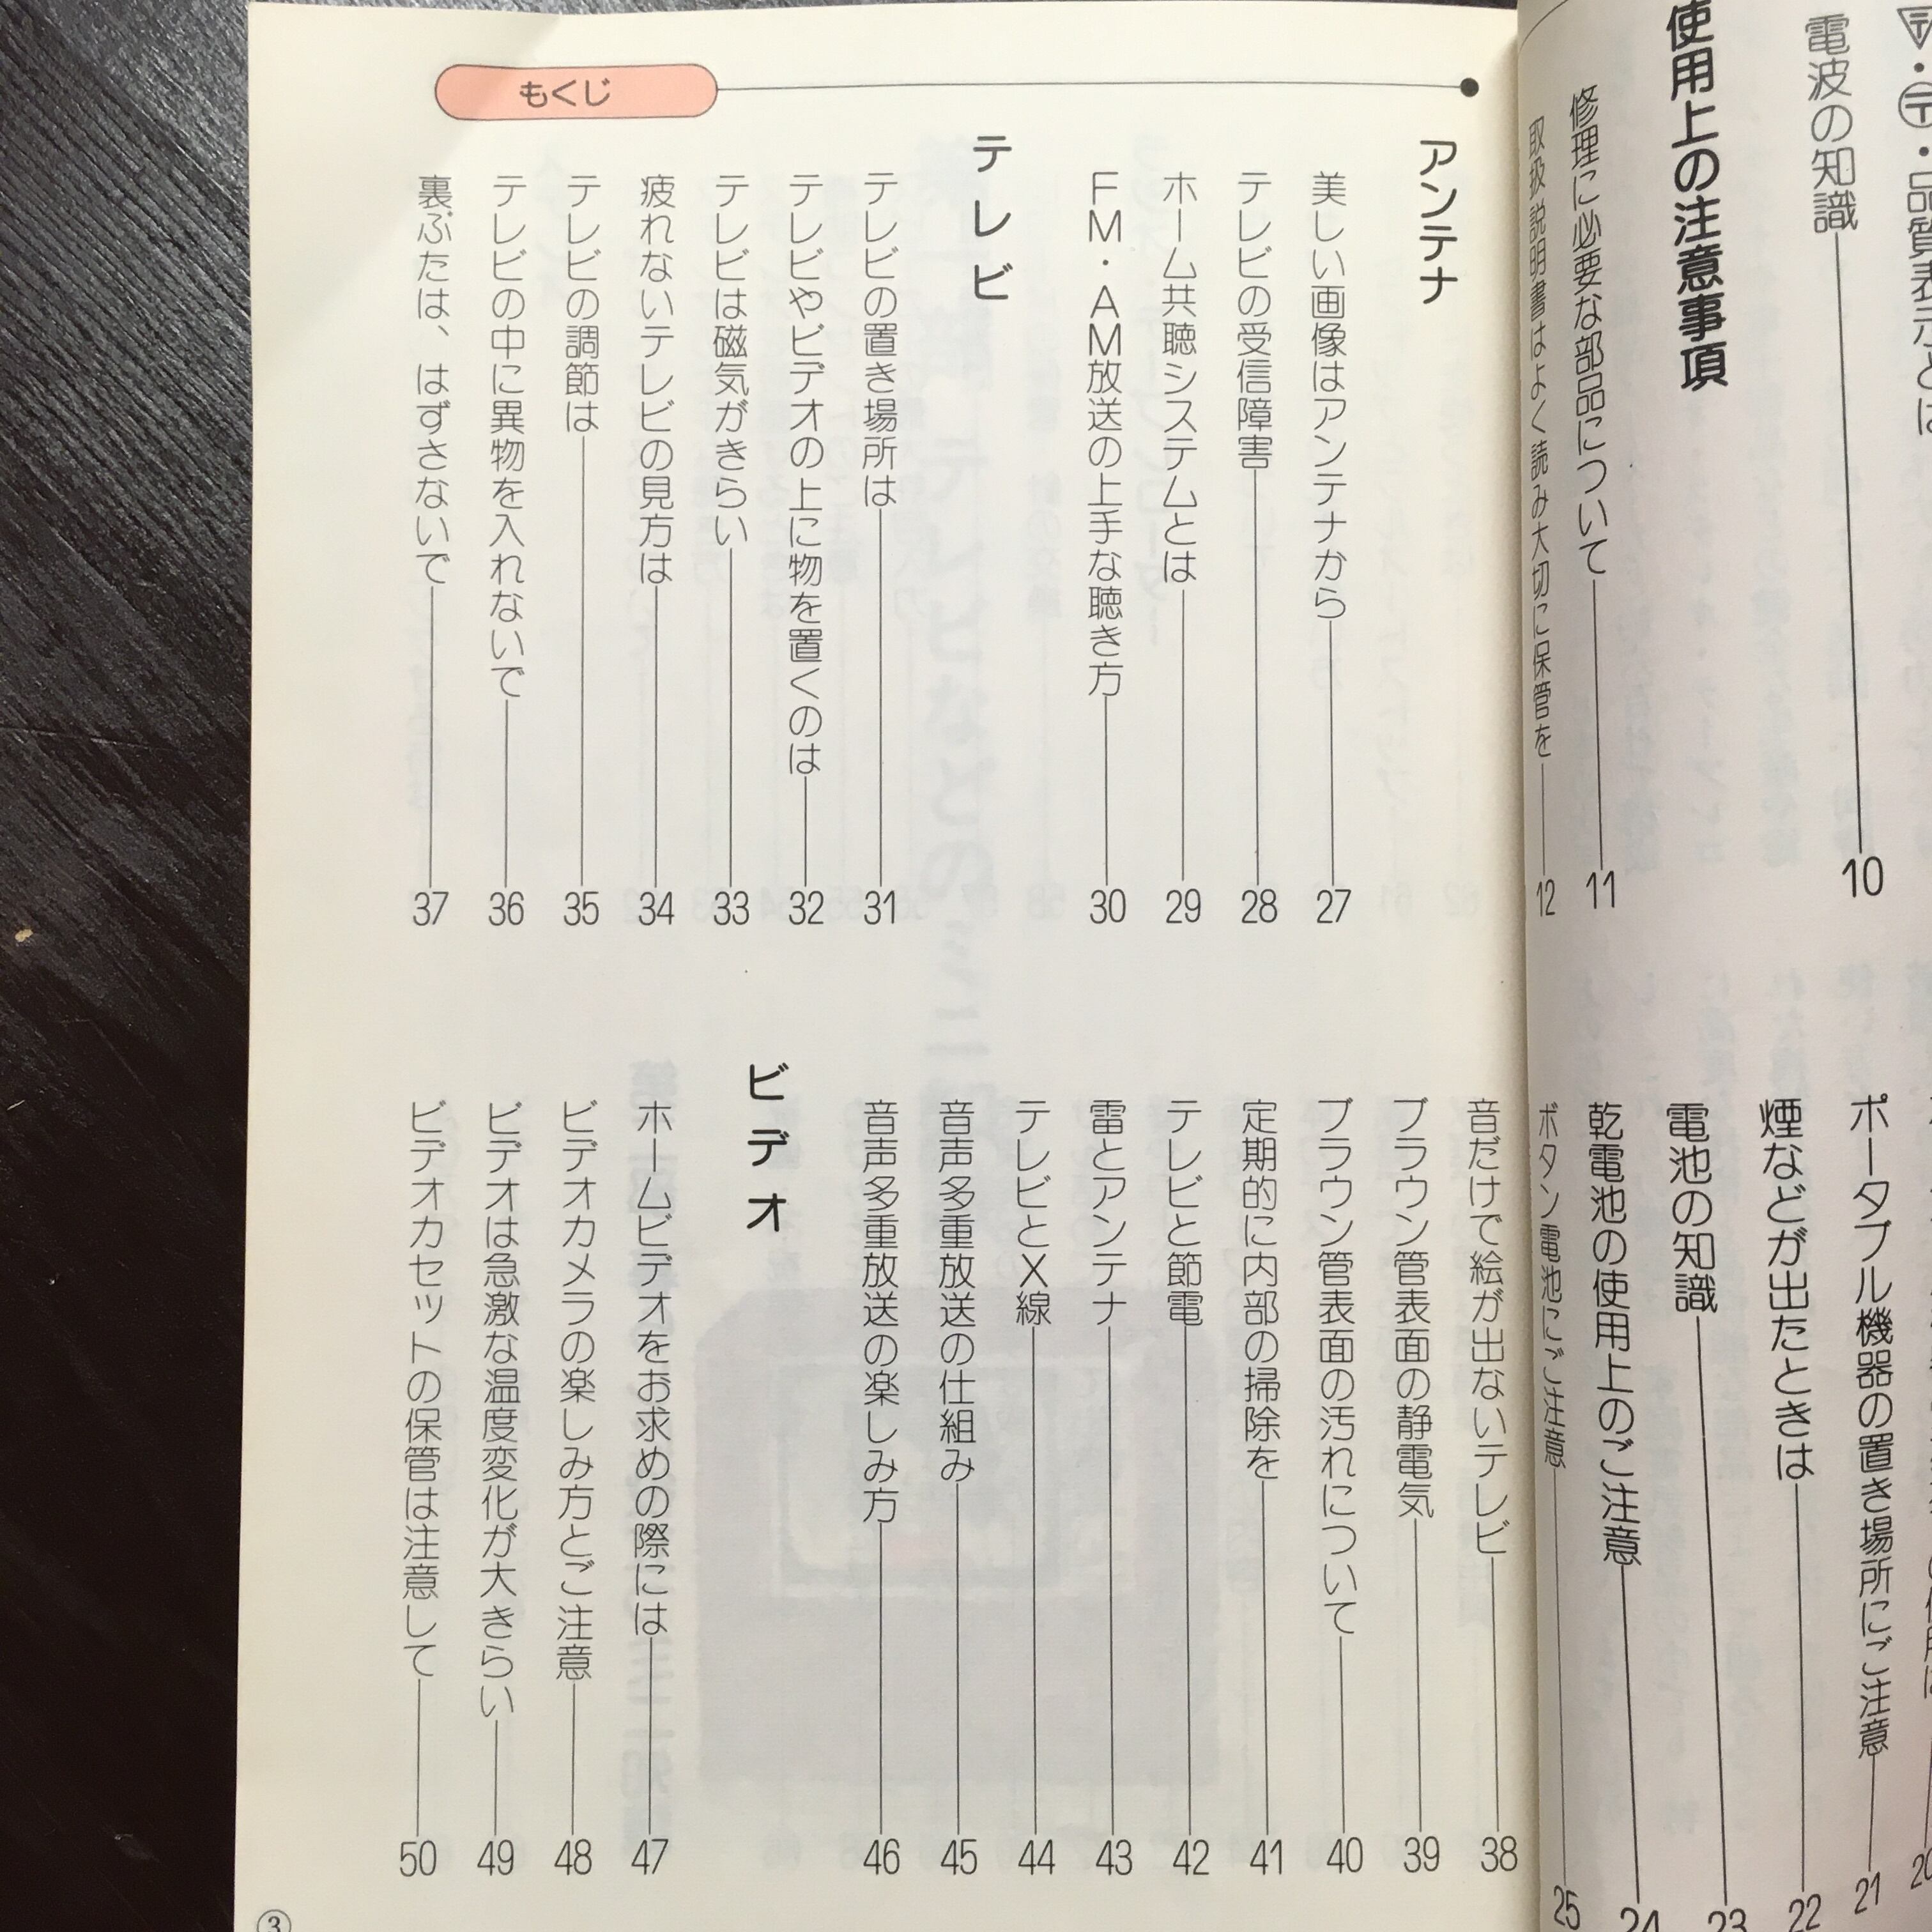 品質表示とは
電波の知識 10
使用上の注意事項
修理に必要な部品について 11
取扱説明書はよく読み大切に保管を 12
20
ポータブル機器の置き場所にご注意 21
煙などが出たときは 22
電池の知識 23
乾電池の使用上のご注意 24
ボタン電池にご注意 25
もくじ
アンテナ
美しい画像はアンテナから 27
テレビの受信障害 28
ホーム共聴システムとは 29
FM・AM放送の上手な聴き方 30
テレビ
テレビの置き場所は 31
テレビやビデオの上に物を置くのは 32
テレビは磁気がきらい 33
疲れないテレビの見方は 34
テレビの調節は 35
テレビの中に異物を入れないで 36
裏ぶたは、はずさないで 37
音だけで絵が出ないテレビ 38
ブラウン管表面の静電気 39
ブラウン管表面の汚れについて 40
定期的に内部の掃除を 41
テレビと節電 42
雷とアンテナ 43
テレビとX線 44
音声多重放送の仕組み 45
音声多重放送の楽しみ方 46
ビデオ
ホームビデオをお求めの際には 47
ビデオカメラの楽しみ方とご注意 48
ビデオは急激な温度変化が大きらい 49
ビデオカセットの保管は注意して 50
③